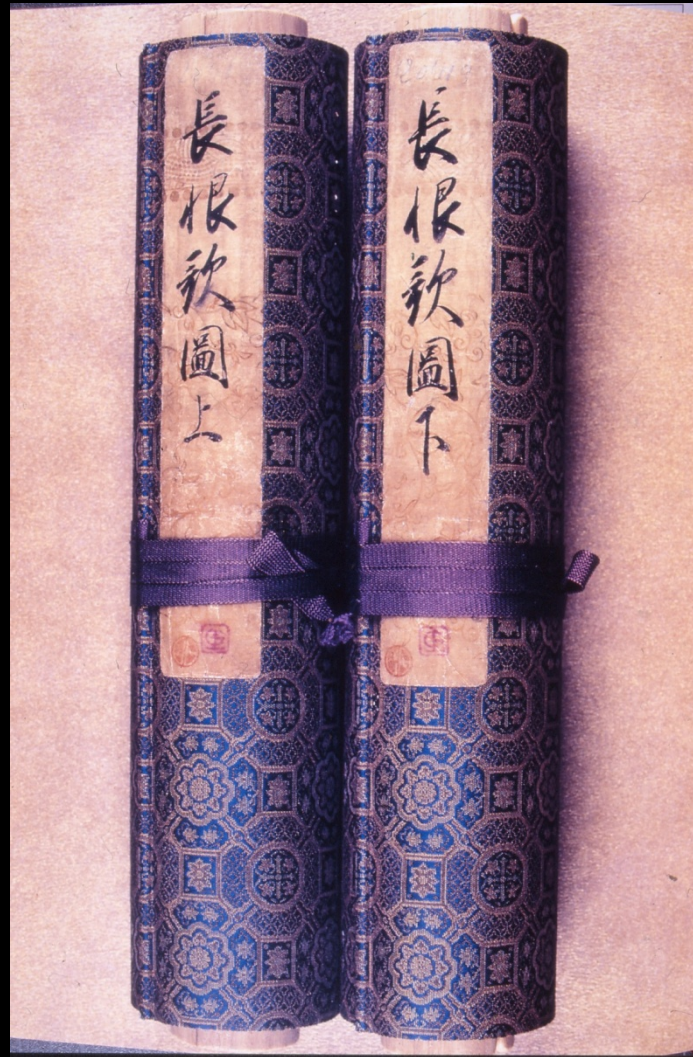 長恨歌圖上
長恨歌圖下